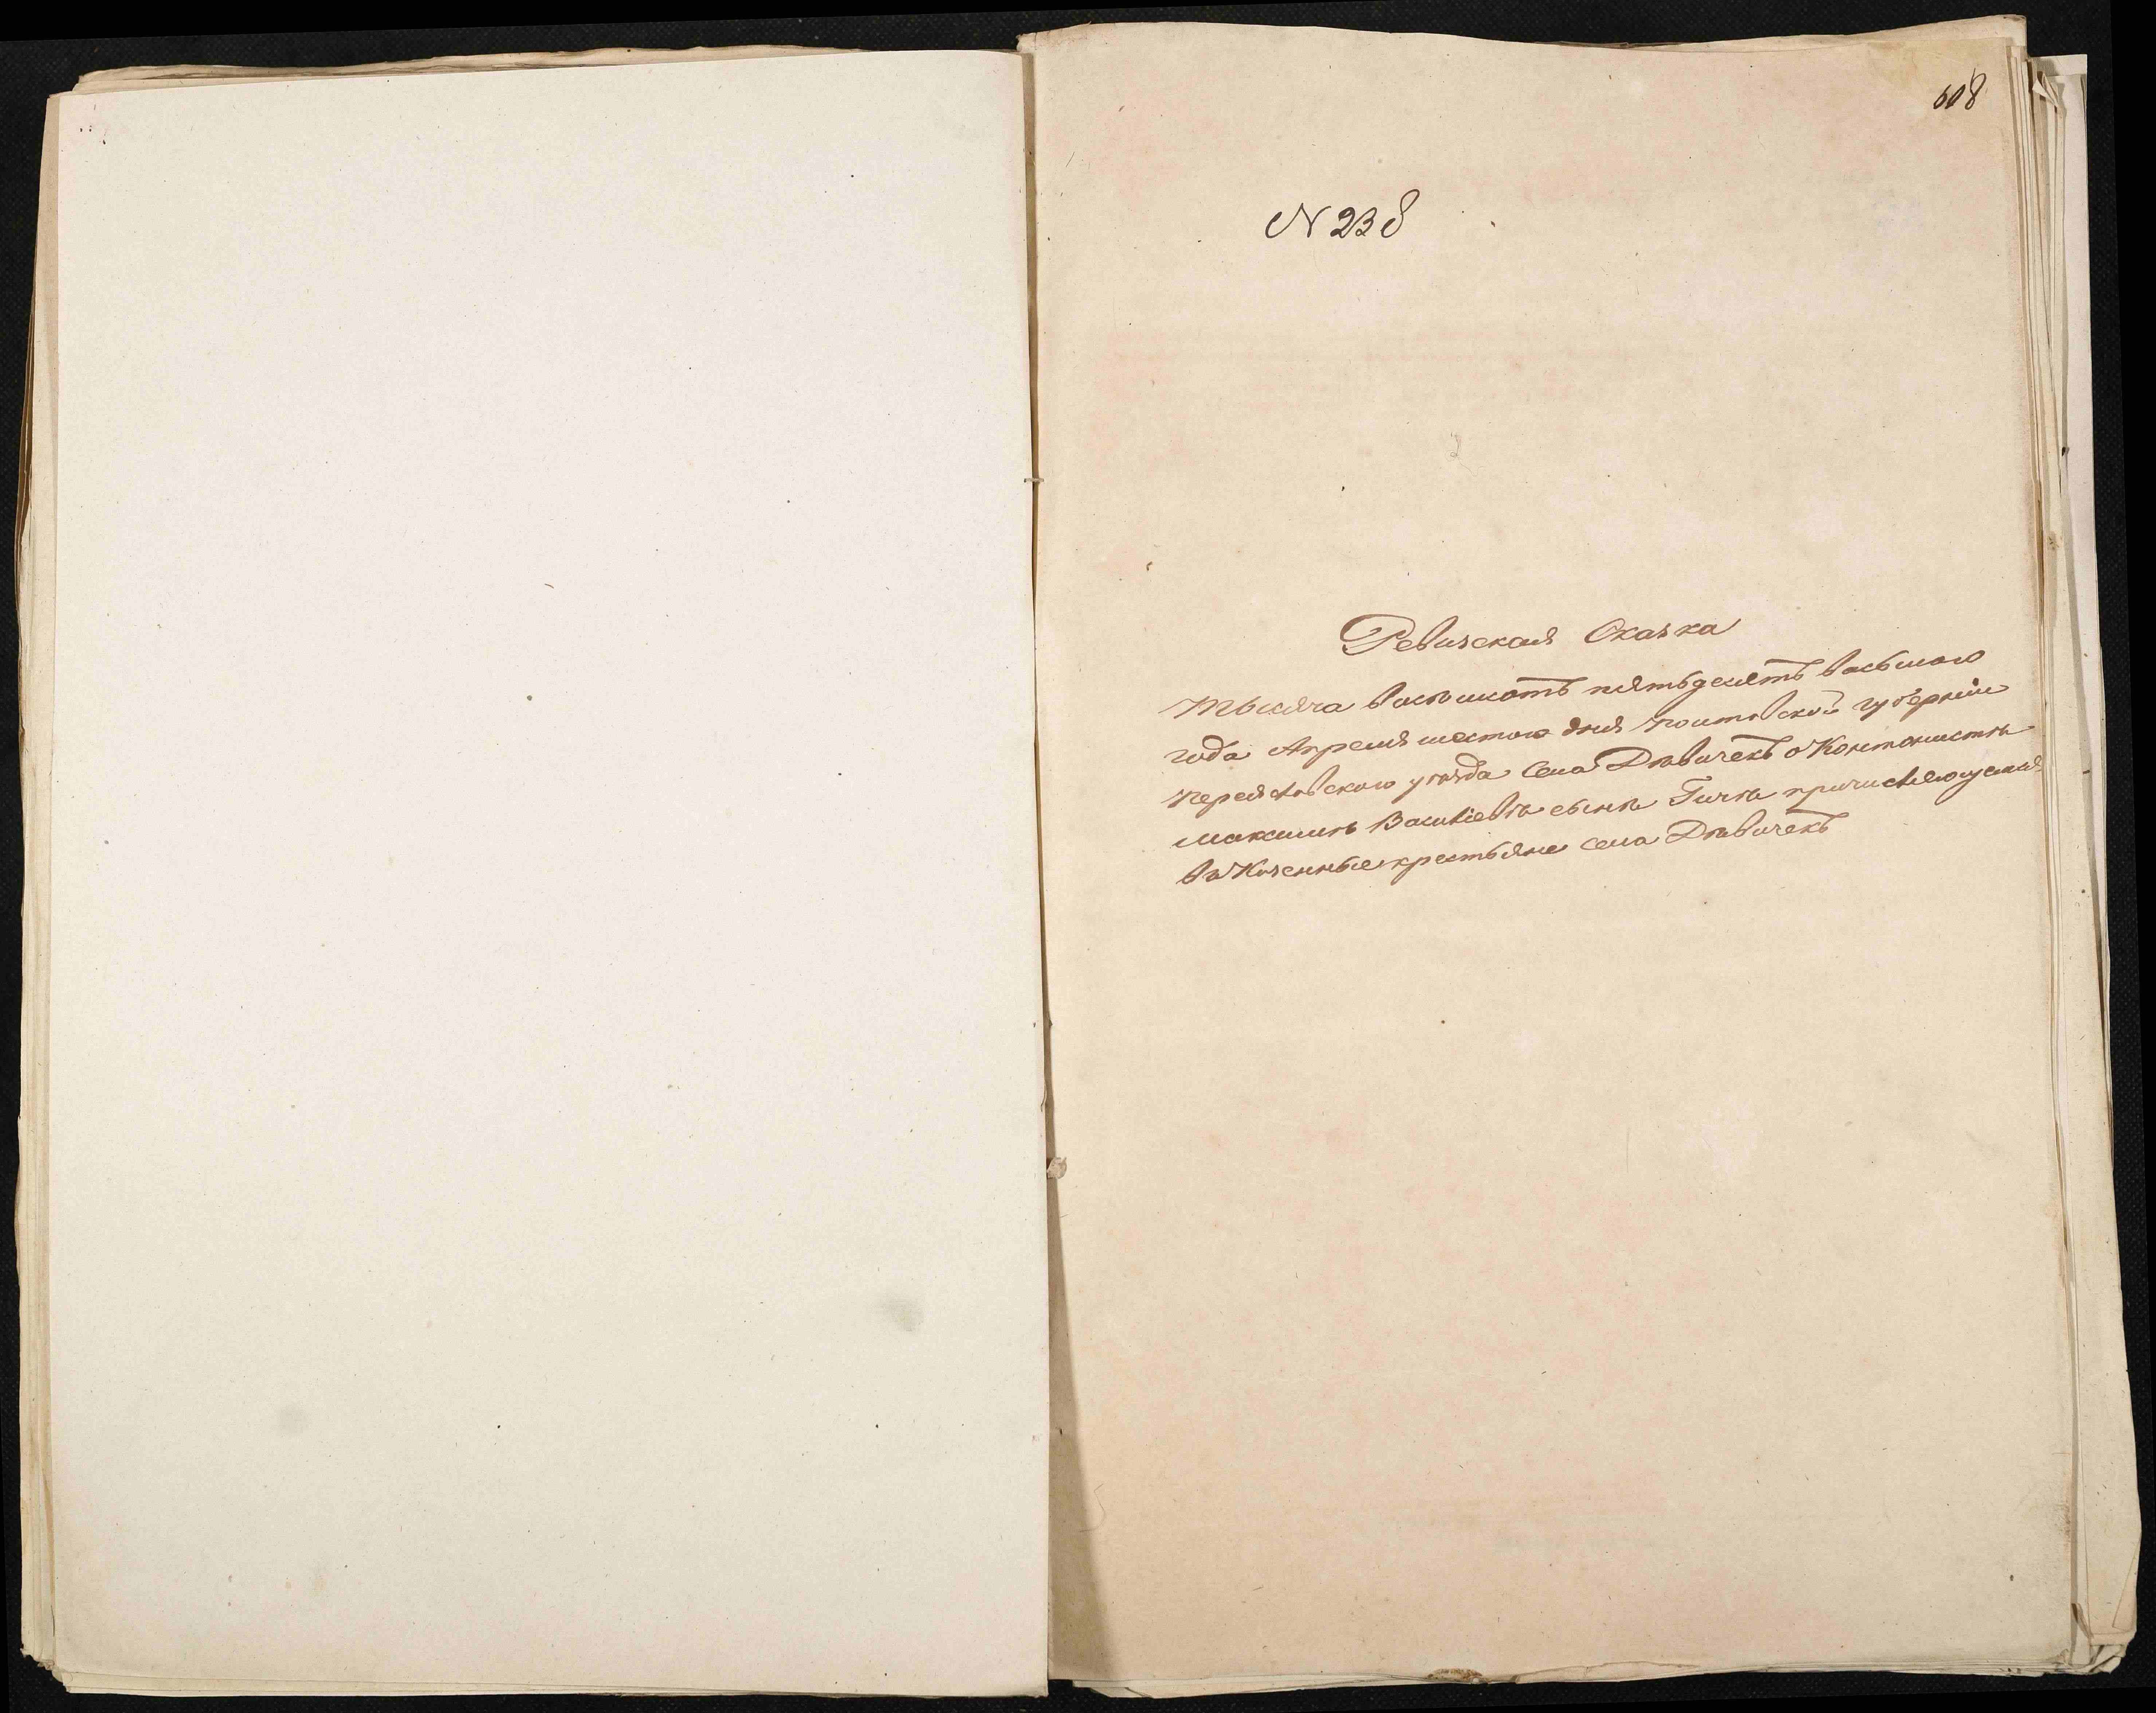 608
N 238
Ревизская Сказка
Тысяча восемсотъ пятьдесятъ восьмаго
года Апреля шестого дня Полтавской губерніи
Переяславского уѣзда Села Дѣвичекъ о Кантонистѣ
Максимѣ Василіевѣ сынѣ причисляющемся
въ Казенные крестьяне Села Дѣвичекъ